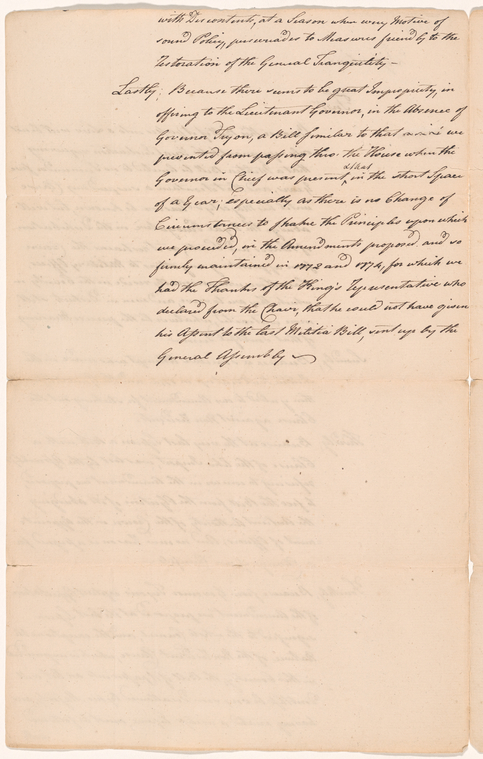 with Discontents, at a Season when every Motive of
sound Policy, perswades to Measures friendly to the
Restoration of the General Tranquility –
Lastly; Because there seems to be great Impropriety, in
offering to the Lieutenant Governor, in the Absence of
Governor Tryon, a Bill similar to that we
prevented from passing thro' the House when the
Governor in Chief was present, in the short Space
of a Year; especially as there is no Change of
Circumstances to shake the Principles upon which
we proceeded, in the Amendments proposed, and so
firmly maintained in 1772 and 1774, for which we
had the Thanks of the King's Representative who
declared from the Chair, that he could not have given
his Assent to the last Militia Bill, sent up by the
General Assembly